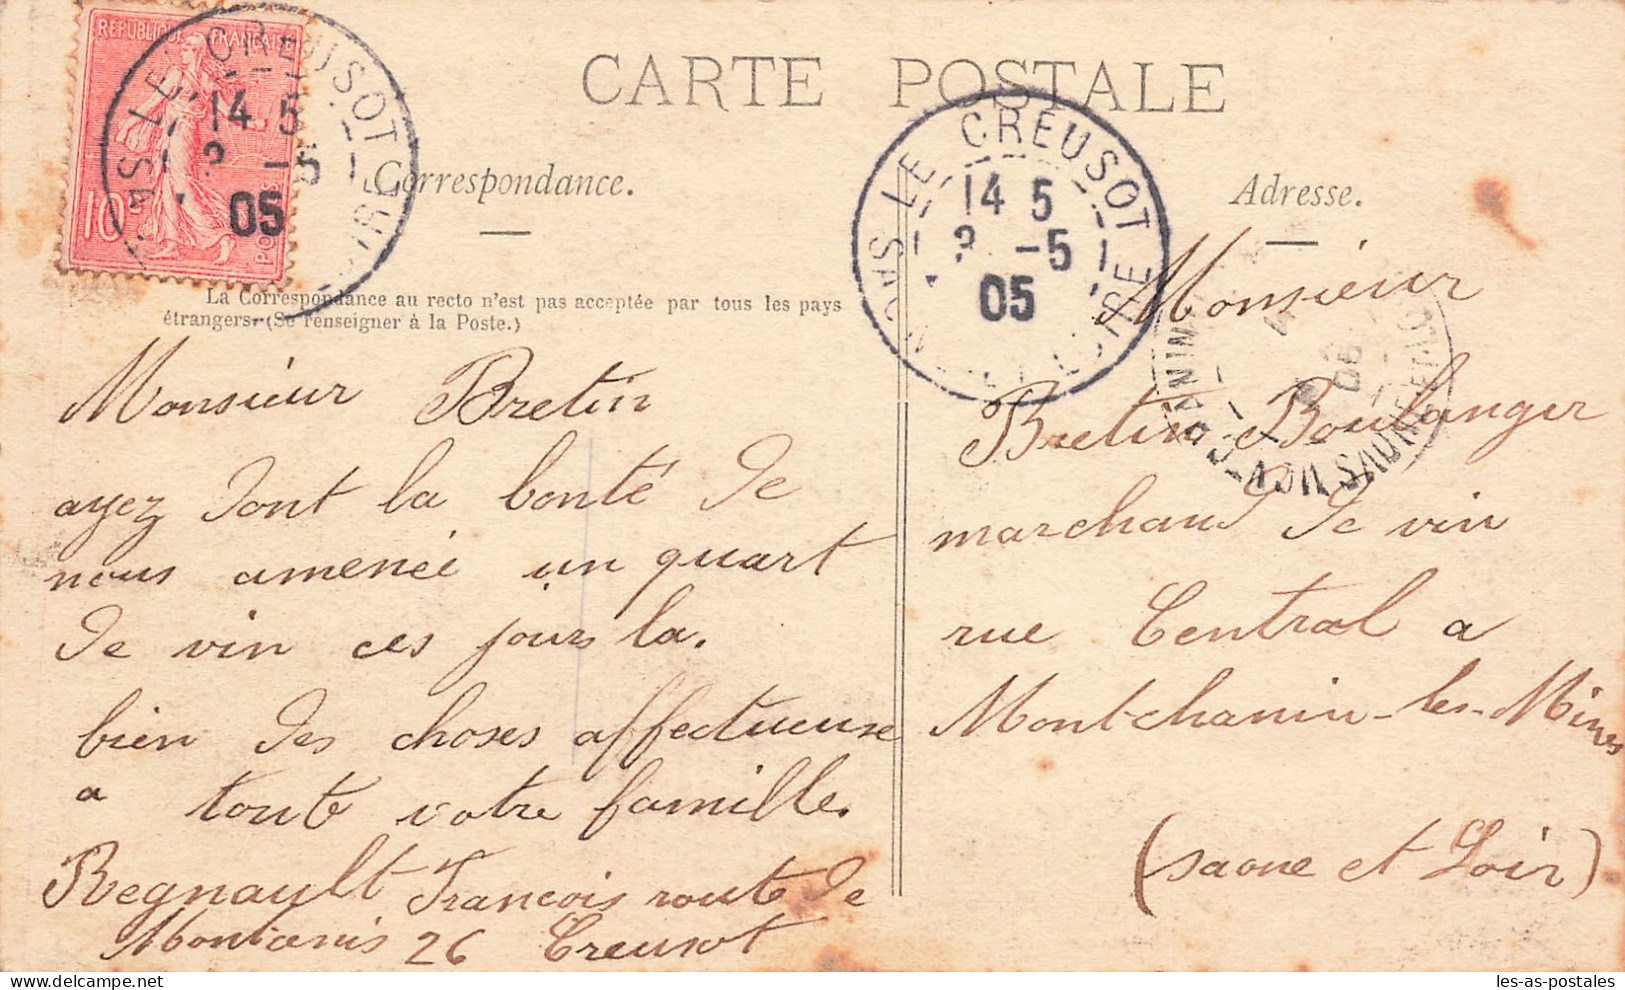 REPUBLIQUE FRANÇAISE
10c
POSTES
LE CREUSOT
14 5
-5
05
CARTE POSTALE
Correspondance.
Adresse.
LE CREUSOT
SAONE ET LOIRE
14 5
-5
05
La Correspondance au recto n'est pas acceptée par tous les pays
étrangers. (Se renseigner à la Poste.)
Monsieur Bretin
ayez dont la bonté de
nous amenée un quart
de vin ces jours la.
bien des choses affectueuse
a toute votre famille.
Regnault François route de
Montcenis 26 Creusot
Monsieur
Bretin Boulanger
marchand de vin
rue Central a
Montchanin-les-Mines
(Saone et Loir)
les-as-postales